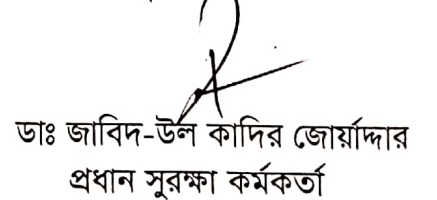 ডাঃ জাবিদ-উল কাদির জোর্য়াদ্দার
প্রধান সুরক্ষা কর্মকর্তা